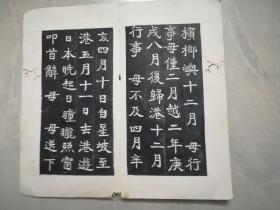 檳榔嶼十二月 母行
事母僅二月越二年庚
戌八月復歸港十二月
行事 母不及四月辛
亥四月十日自星坡至
港五月十一日去港遊
日本晩起日曈曨照窗
叩首辭 母 母送下